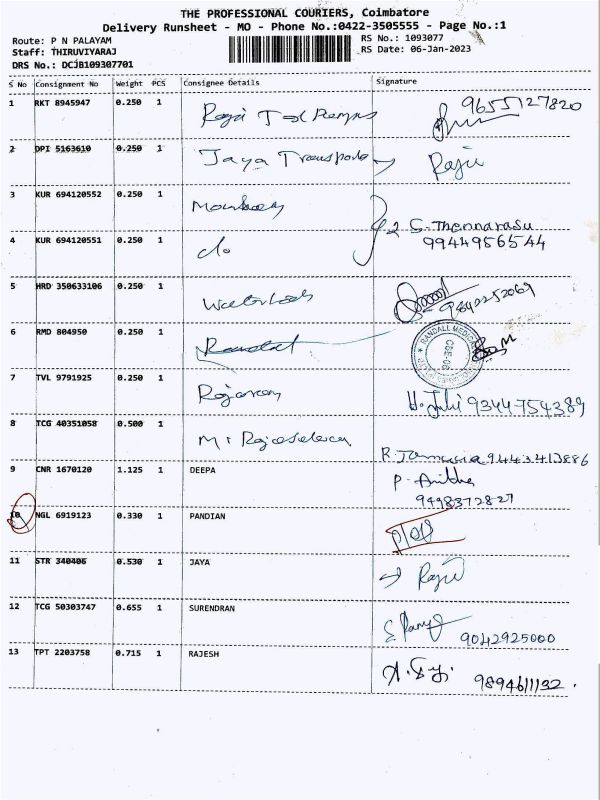 THE PROFESSIONAL COURIERS, Coimbatore
Delivery Runsheet - MO - Phone No.:0422-3505555 - Page No.:1
Route: P N PALAYAM
RS No.: 1093077
Staff: THIRUVIYARAJ
RS Date: 06-Jan-2023
DRS No.: DCJB109307701
S No Consignment No Weight PCS Consignee Details Signature
1 RKT 8945947 0.250 1 9655127820
2 DPI 5163610 0.250 1 Jaya Transports → Raju
3 KUR 694120552 0.250 1
2 S. Thennarasu
4 KUR 694120551 0.250 1 do 9944956544
5 HRD 350633106 0.250 1 9842252069
6 RMD 804950 0.250 1 RANDALL MEDICAL CBE-06
7 TVL 9791925 0.250 1 9344754389
8 TCG 40351058 0.500 1 9443413886
9 CNR 1670120 1.125 1 DEEPA P. Anitha
9498372827
10 NGL 6919123 0.330 1 PANDIAN
11 STR 340406 0.530 1 JAYA → Raju
12 TCG 50303747 0.655 1 SURENDRAN 9042925000
13 TPT 2203758 0.715 1 RAJESH 9894611132.